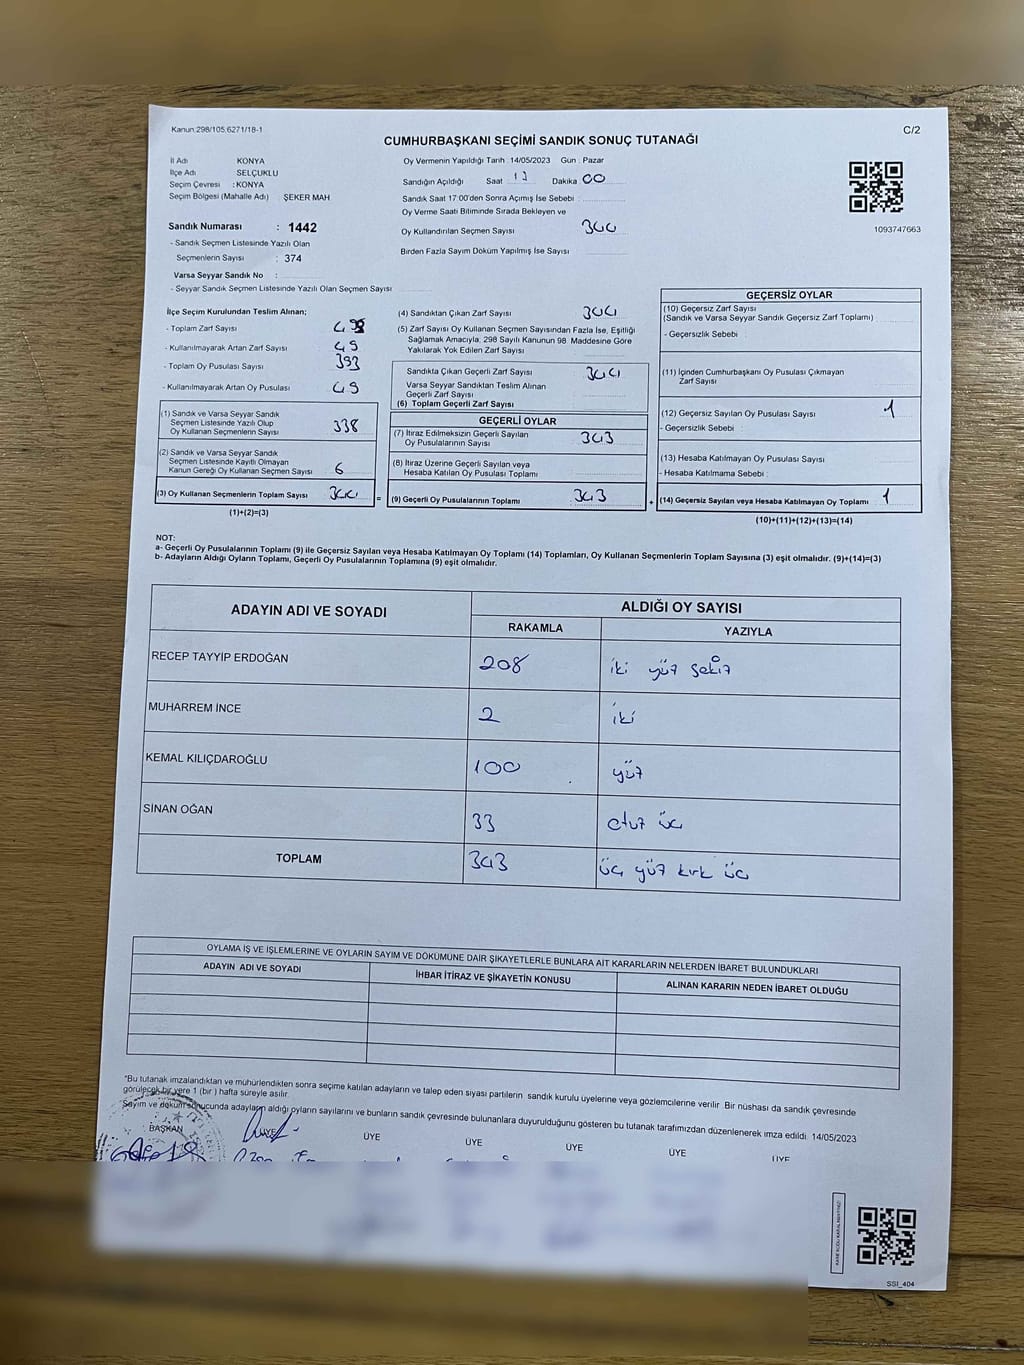 Kanun:298/105,6271/18-1
C/2
CUMHURBAŞKANI SEÇİMİ SANDIK SONUÇ TUTANAĞI
İl Adı KONYA
İlçe Adı SELÇUKLU
Seçim Çevresi : KONYA
Seçim Bölgesi (Mahalle Adı) ŞEKER MAH
Oy Vermenin Yapıldığı Tarih 14/05/2023 Gün : Pazar
Sandığın Açıldığı Saat Dakika 00
Sandık Saat 17:00'den Sonra Açımış İse Sebebi :
Oy Verme Saati Bitiminde Sırada Bekleyen ve
Oy Kullandırılan Seçmen Sayısı 344
Birden Fazla Sayım Döküm Yapılmış İse Sayısı
1093747663
Sandık Numarası : 1442
- Sandık Seçmen Listesinde Yazılı Olan
Seçmenlerin Sayısı : 374
Varsa Seyyar Sandık No :
- Seyyar Sandık Seçmen Listesinde Yazılı Olan Seçmen Sayısı
İlçe Seçim Kurulundan Teslim Alınan;
- Toplam Zarf Sayısı
- Kullanılmayarak Artan Zarf Sayısı 49
- Toplam Oy Pusulası Sayısı 393
- Kullanılmayarak Artan Oy Pusulası 49
(1) Sandık ve Varsa Seyyar Sandık
Seçmen Listesinde Yazılı Olup
Oy Kullanan Seçmenlerin Sayısı 338
(2) Sandık ve Varsa Seyyar Sandık
Seçmen Listesinde Kayıtlı Olmayan
Kanun Gereği Oy Kullanan Seçmen Sayısı 6
(3) Oy Kullanan Seçmenlerin Toplam Sayısı 344
(1)+(2)=(3)
(4) Sandıktan Çıkan Zarf Sayısı 344
(5) Zarf Sayısı Oy Kullanan Seçmen Sayısından Fazla İse, Eşitliği
Sağlamak Amacıyla; 298 Sayılı Kanunun 98. Maddesine Göre
Yakılarak Yok Edilen Zarf Sayısı
Sandıkta Çıkan Geçerli Zarf Sayısı 344
Varsa Seyyar Sandıktan Teslim Alınan
Geçerli Zarf Sayısı
(6) Toplam Geçerli Zarf Sayısı
GEÇERLİ OYLAR
(7) İtiraz Edilmeksizin Geçerli Sayılan
Oy Pusulalarının Sayısı 343
(8) İtiraz Üzerine Geçerli Sayılan veya
Hesaba Katılan Oy Pusulası Toplamı
= (9) Geçerli Oy Pusulalarının Toplamı 343
GEÇERSİZ OYLAR
(10) Geçersiz Zarf Sayısı
(Sandık ve Varsa Seyyar Sandık Geçersiz Zarf Toplamı)
- Geçersizlik Sebebi :
(11) İçinden Cumhurbaşkanı Oy Pusulası Çıkmayan
Zarf Sayısı
(12) Geçersiz Sayılan Oy Pusulası Sayısı 1
- Geçersizlik Sebebi :
(13) Hesaba Katılmayan Oy Pusulası Sayısı
- Hesaba Katılmama Sebebi :
+ (14) Geçersiz Sayılan veya Hesaba Katılmayan Oy Toplamı 1
(10)+(11)+(12)+(13)=(14)
NOT:
a- Geçerli Oy Pusulalarının Toplamı (9) ile Geçersiz Sayılan veya Hesaba Katılmayan Oy Toplamı (14) Toplamları, Oy Kullanan Seçmenlerin Toplam Sayısına (3) eşit olmalıdır. (9)+(14)=(3)
b- Adayların Aldığı Oyların Toplamı, Geçerli Oy Pusulalarının Toplamına (9) eşit olmalıdır.
ADAYIN ADI VE SOYADI ALDIĞI OY SAYISI
RAKAMLA YAZIYLA
RECEP TAYYİP ERDOĞAN 208 iki yüz sekiz
MUHARREM İNCE 2 iki
KEMAL KILIÇDAROĞLU 100 yüz
SİNAN OĞAN 33 otuz üç
TOPLAM 343 üç yüz kırk üç
OYLAMA İŞ VE İŞLEMLERİNE VE OYLARIN SAYIM VE DÖKÜMÜNE DAİR ŞİKAYETLERLE BUNLARA AİT KARARLARIN NELERDEN İBARET BULUNDUKLARI
ADAYIN ADI VE SOYADI İHBAR İTİRAZ VE ŞİKAYETİN KONUSU ALINAN KARARIN NEDEN İBARET OLDUĞU
"Bu tutanak imzalandıktan ve mühürlendikten sonra seçime katılan adayların ve talep eden siyasi partilerin sandık kurulu üyelerine veya gözlemcilerine verilir. Bir nüshası da sandık çevresinde
görülecek bir yere 1 (bir ) hafta süreyle asılır.
Sayım ve döküm sonucunda adayların aldığı oyların sayılarını ve bunların sandık çevresinde bulunanlara duyurulduğunu gösteren bu tutanak tarafımızdan düzenlenerek imza edildi. 14/05/2023
BAŞKAN ÜYE ÜYE ÜYE ÜYE ÜYE ÜYE
SSI_404